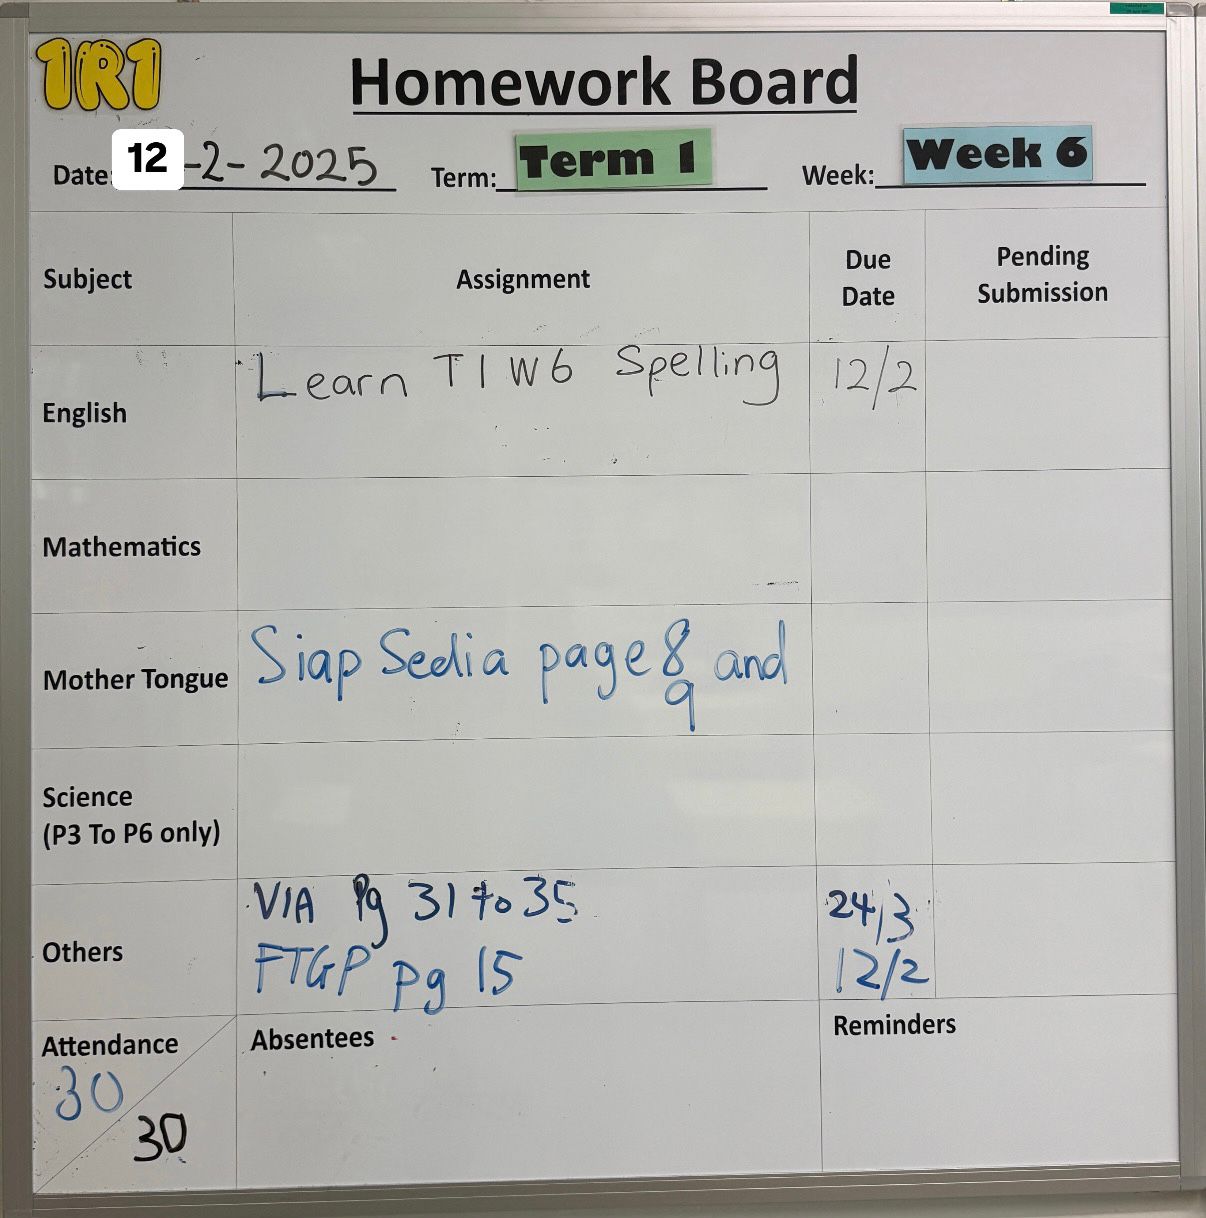 1R1
Homework Board
Date: 12-2-2025 Term: Term 1 Week: Week 6
Subject Assignment Due Date Pending Submission
English Learn T1W6 Spelling 12/2
Mathematics
Mother Tongue Siap Sedia page 8 and
9
Science
(P3 To P6 only)
Others
VIA Pg 31 to 35 24/3
FTGP pg 15 12/2
Attendance Absentees Reminders
30
30